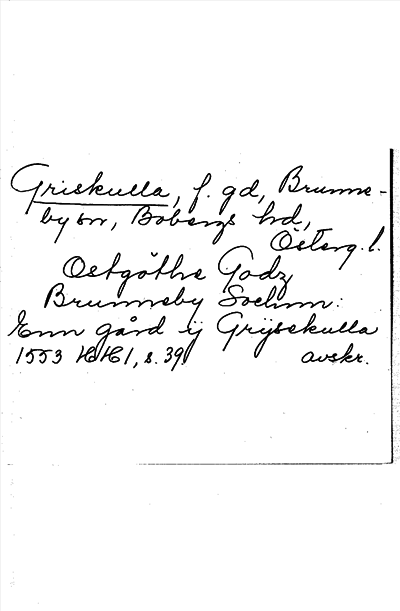 Griskulla, f. gd, Brunne-
by sn, Bobergs hd,
Österg. l.
Ostgöthe Godz
Brunneby Sochnn:
Enn gård ij Grijsekulla
1553 HH 1, s. 39 avskr.